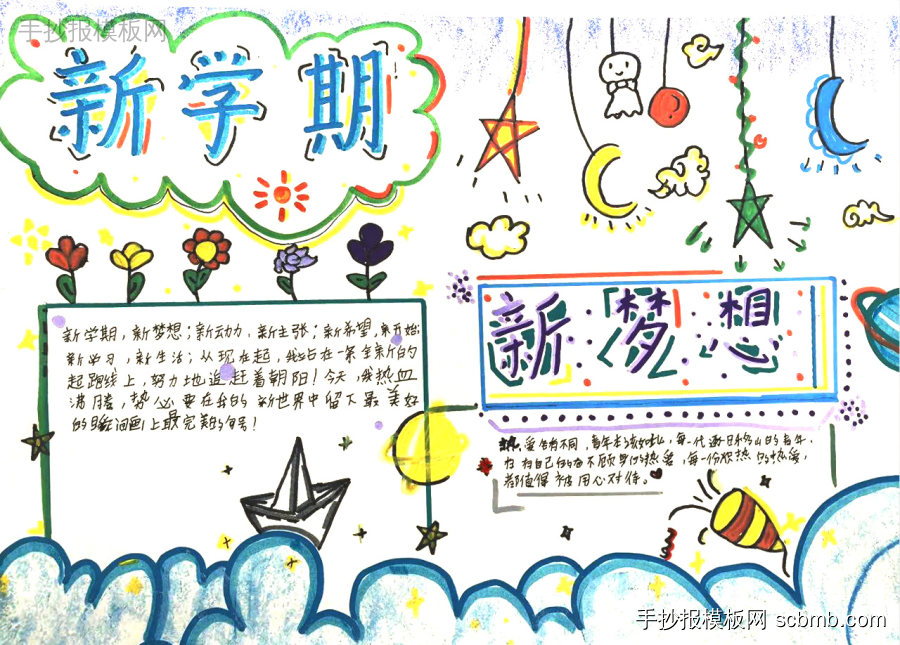 手抄报模板网
新学期
新学期，新梦想；新动力，新主张；新希望，新开始
新学习，新生活；从现在起，我站在一条全新的
起跑线上，努力地追赶着朝阳！今天，我热血
满腾，势必要在我的新世界中留下最美好
的瞬间画上最完美的句号！
新梦想
热爱各有不同，青年
自己的 不顾 的热爱，每一份 热的热爱，
都值得被用心对待。
手抄报模板网 scbmb.com